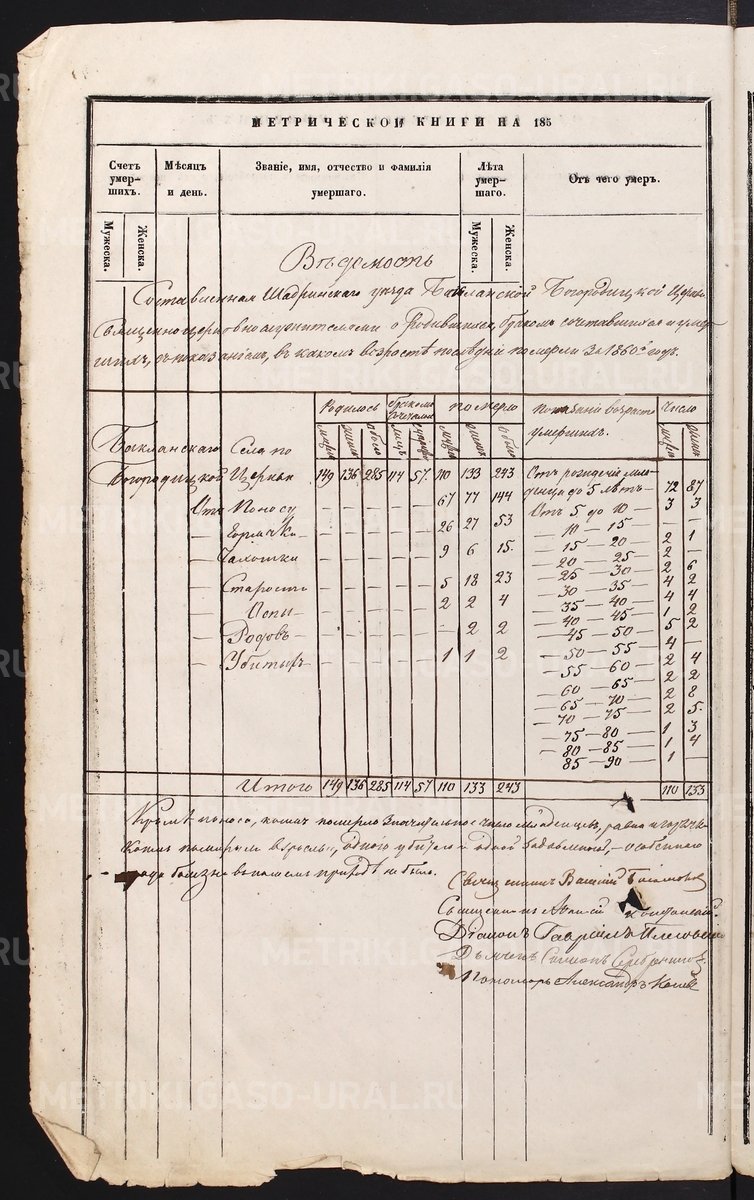 МЕТРИЧЕСКОЙ КНИГИ НА 185
Счетъ умерших. Мѣсяцъ и день. Званіе, имя, отчество и фамилія умершаго. Лѣта умершаго. Отъ чего умеръ.
Мужеска. Женска. Мужеска. Женска.
Вѣдомость
Составленная Шадринскаго уѣзда Бакланской Богородицкой Церкви
Священноцерковнослужителями о родившихся, бракомъ сочетавшихся и умер-
шихъ, съ показаніемъ, въ какомъ возрастѣ послѣдніе померли за 1860й годъ.
Родилось бракомъ сочеталось померло Показаніе возраста умершихъ. Число
Бакланскаго Села по
Богородицкой Церкви 149 136 285 114 57 110 133 243 Отъ рожденія мла-
денца до 5 лѣтъ— 72 87
Отъ Поносу — — — — — 67 77 144 Отъ 5 до 10 — 3 3
— Горячки — — — — — 26 27 53 — 10 — 15 — — —
— 15 — 20 — 2 1
— Чахотки — — — — — 9 6 15. — 20 — 25 — 2 —
— 25 — 30 — 2 6
— Старости — — — — — 5 18 23 — 30 — 35 — 4 2
— Оспы — — — — — 2 2 4 — 35 — 40 — 4 4
— 40 — 45 — 1 2
— Родовъ — — — — — — 2 2 — 45 — 50 — 5 2
— 50 — 55 — 4 —
— Убитыхъ — — — — — 1 1 2 — 55 — 60 — 2 4
— 60 — 65 — 2 2
— 65 — 70 — 2 8
— 70 — 75 — 2 5.
— 75 — 80 — 1 3
— 80 — 85 — 1 4
— 85 — 90 — 1 —
Итого 149 136 285 114 57 110 133 243 110 133
Кромѣ поноса, коимъ померло значительное число младенцевъ, равно и горячки
коими померли взрослые, одного убитаго и одной — особеннаго
рода болезней въ семъ приходѣ не было.
Священникъ Василій
Священникъ
Діаконъ Гавріилъ
Дьячекъ Симеонъ Серебренниковъ
Пономарь Александръ
METRIKI.GASO-URAL.RU